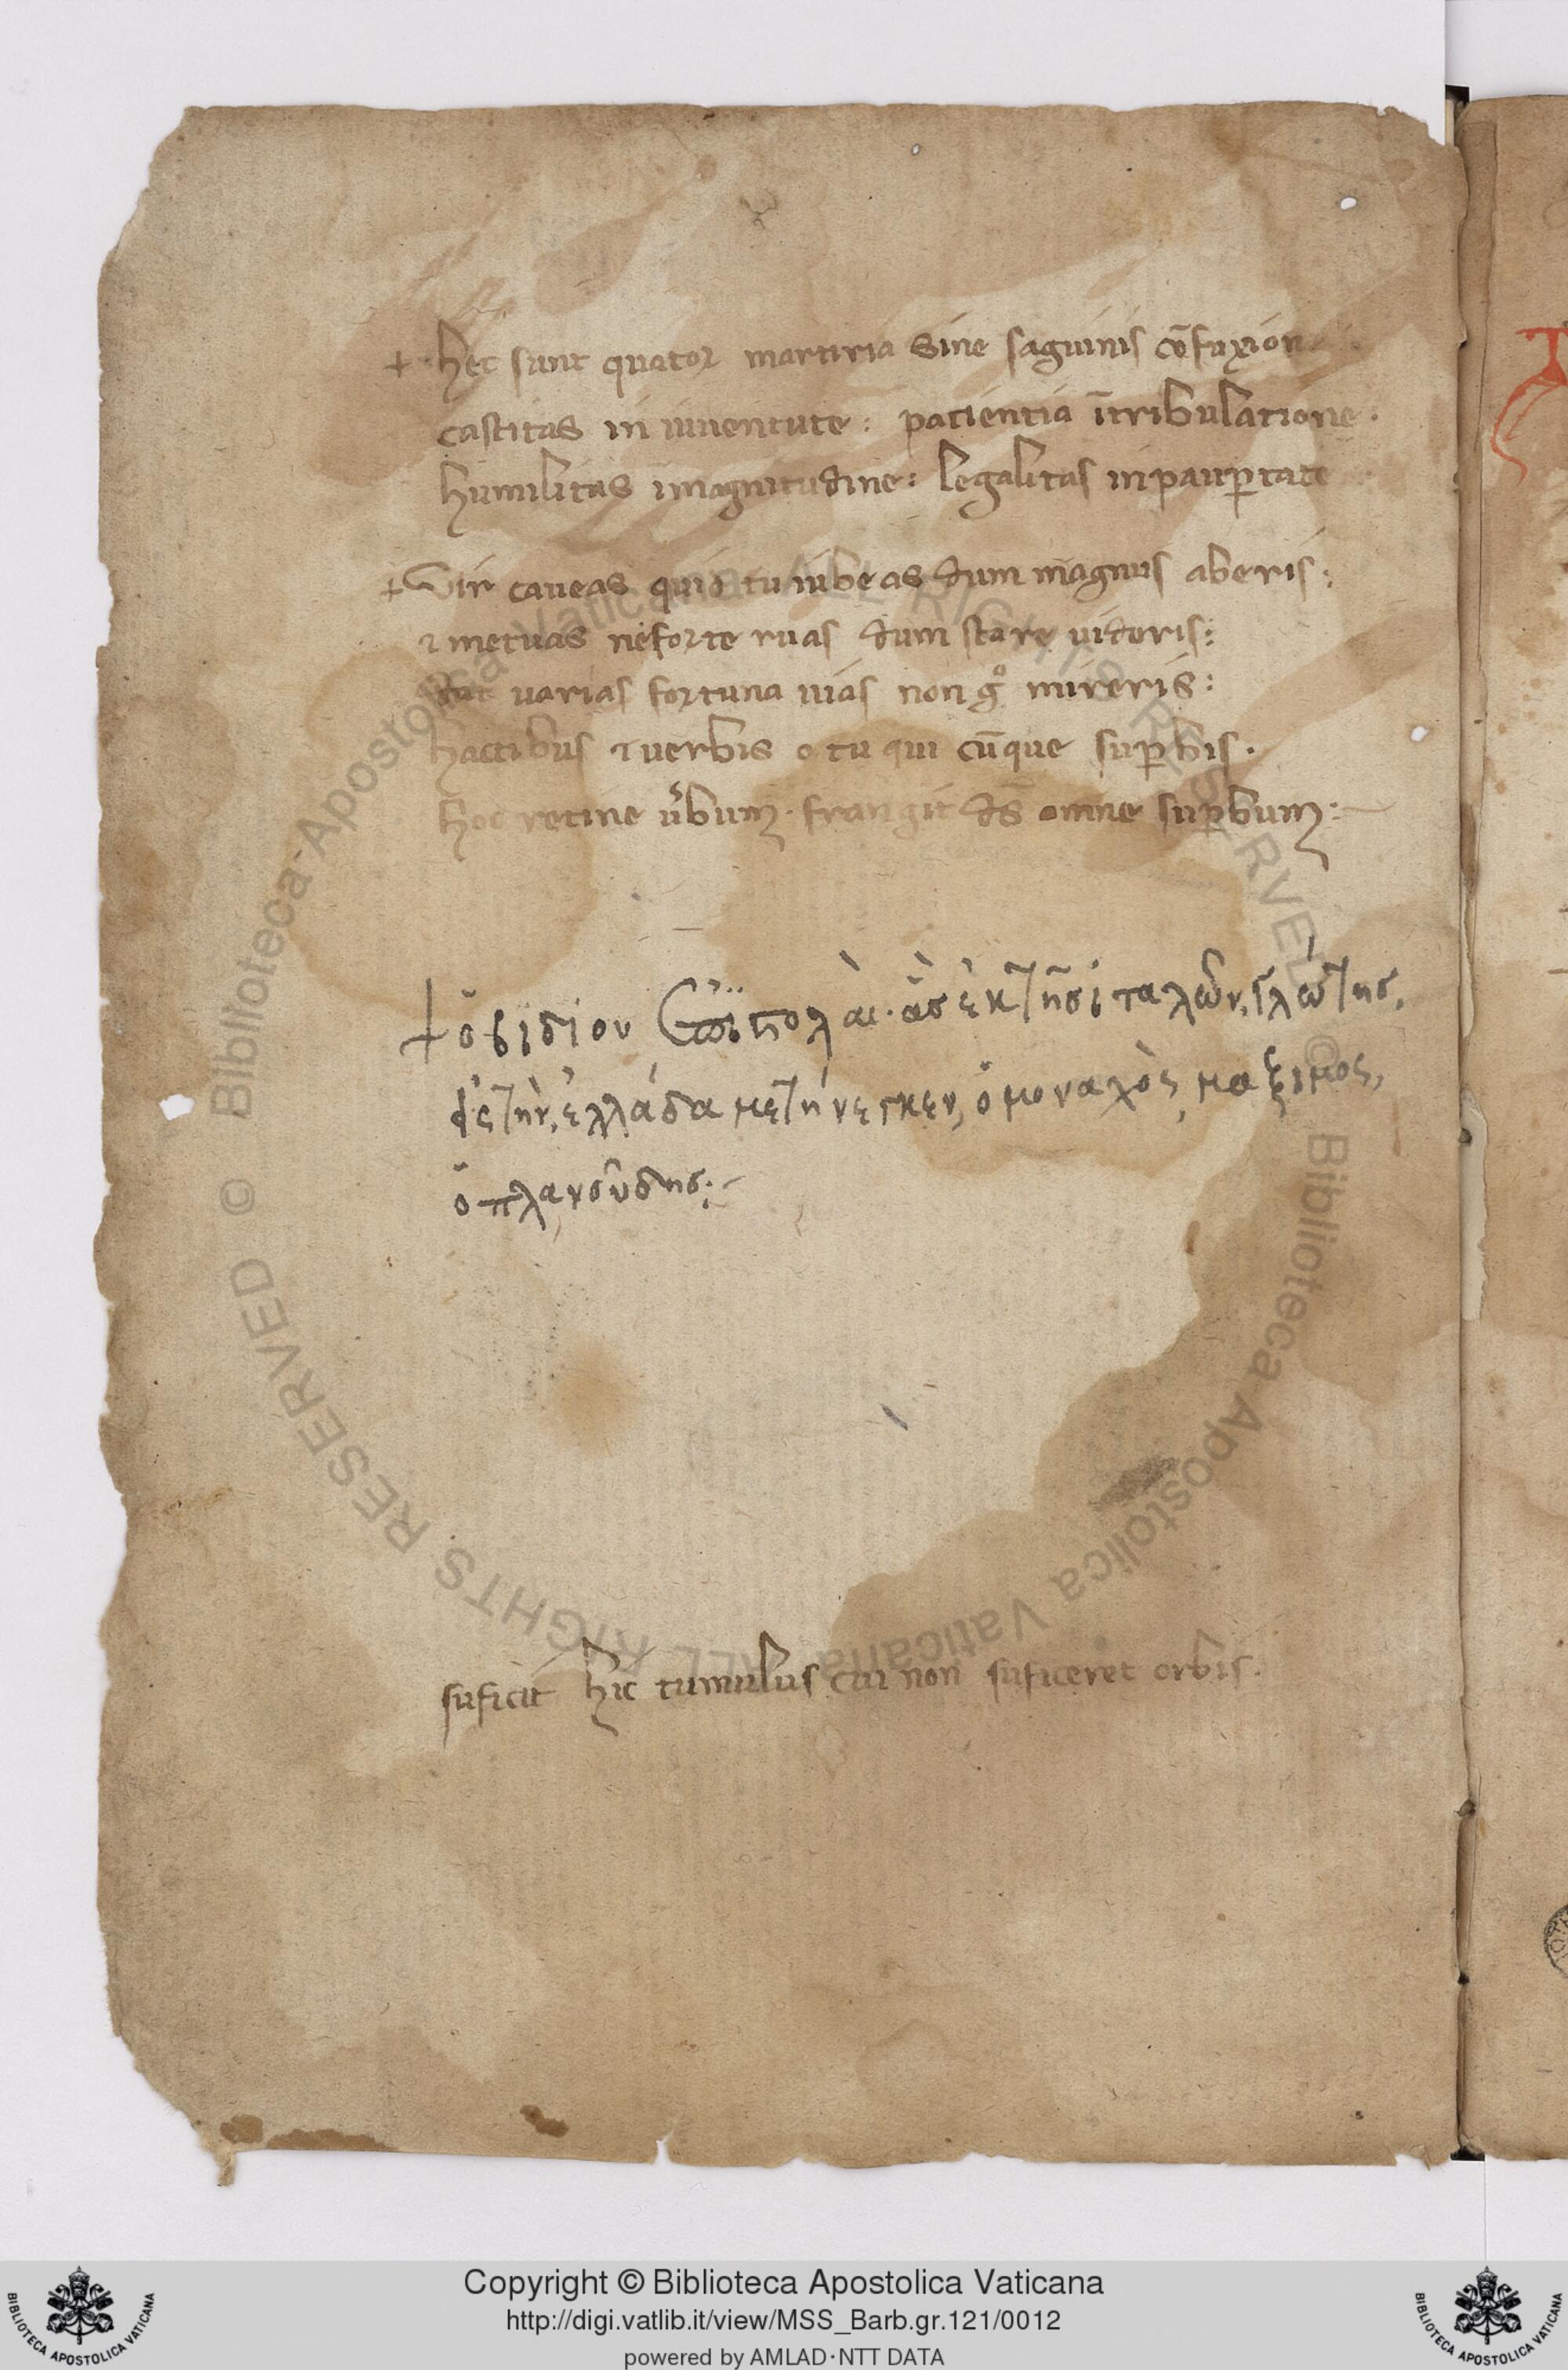 + hec sunt quator martiria sine saguinis cōfuxion
castitas in iuuentute : patientia ītribulatione :
humilitas imagnitudine : legalitas inpaup̱tate
+ Vir caueas quid tu iubeas dum magnus aberis :
⁊ metuas neforte ruas dum stare uideris :
dat uarias fortuna uias non gͦ mireris :
hactibus ⁊ uerbis o tu qui cūque sup̱bis .
hoc retine u̓bum . frangit ds̄ omne sup̱bum :
+ ὀβιδίου ἐπιστολαὶ . ἃσ ἐκ τῆσ ἰταλῶν, γλώτησ,
εἰς τὴν, ἑλλάδα μετήνεγκεν, ὁ μοναχὸς, μαξιμος,
ὁ πλανούδησ :
suficit hic tumulus cui non suficeret orbis .
Copyright © Biblioteca Apostolica Vaticana
http://digi.vatlib.it/view/MSS_Barb.gr.121/0012
powered by AMLAD·NTT DATA
BIBLIOTECA APOSTOLICA VATICANA
BIBLIOTECA APOSTOLICA VATICANA
© Biblioteca Apostolica Vaticana ALL RIGHTS RESERVED
© Biblioteca Apostolica Vaticana ALL RIGHTS RESERVED